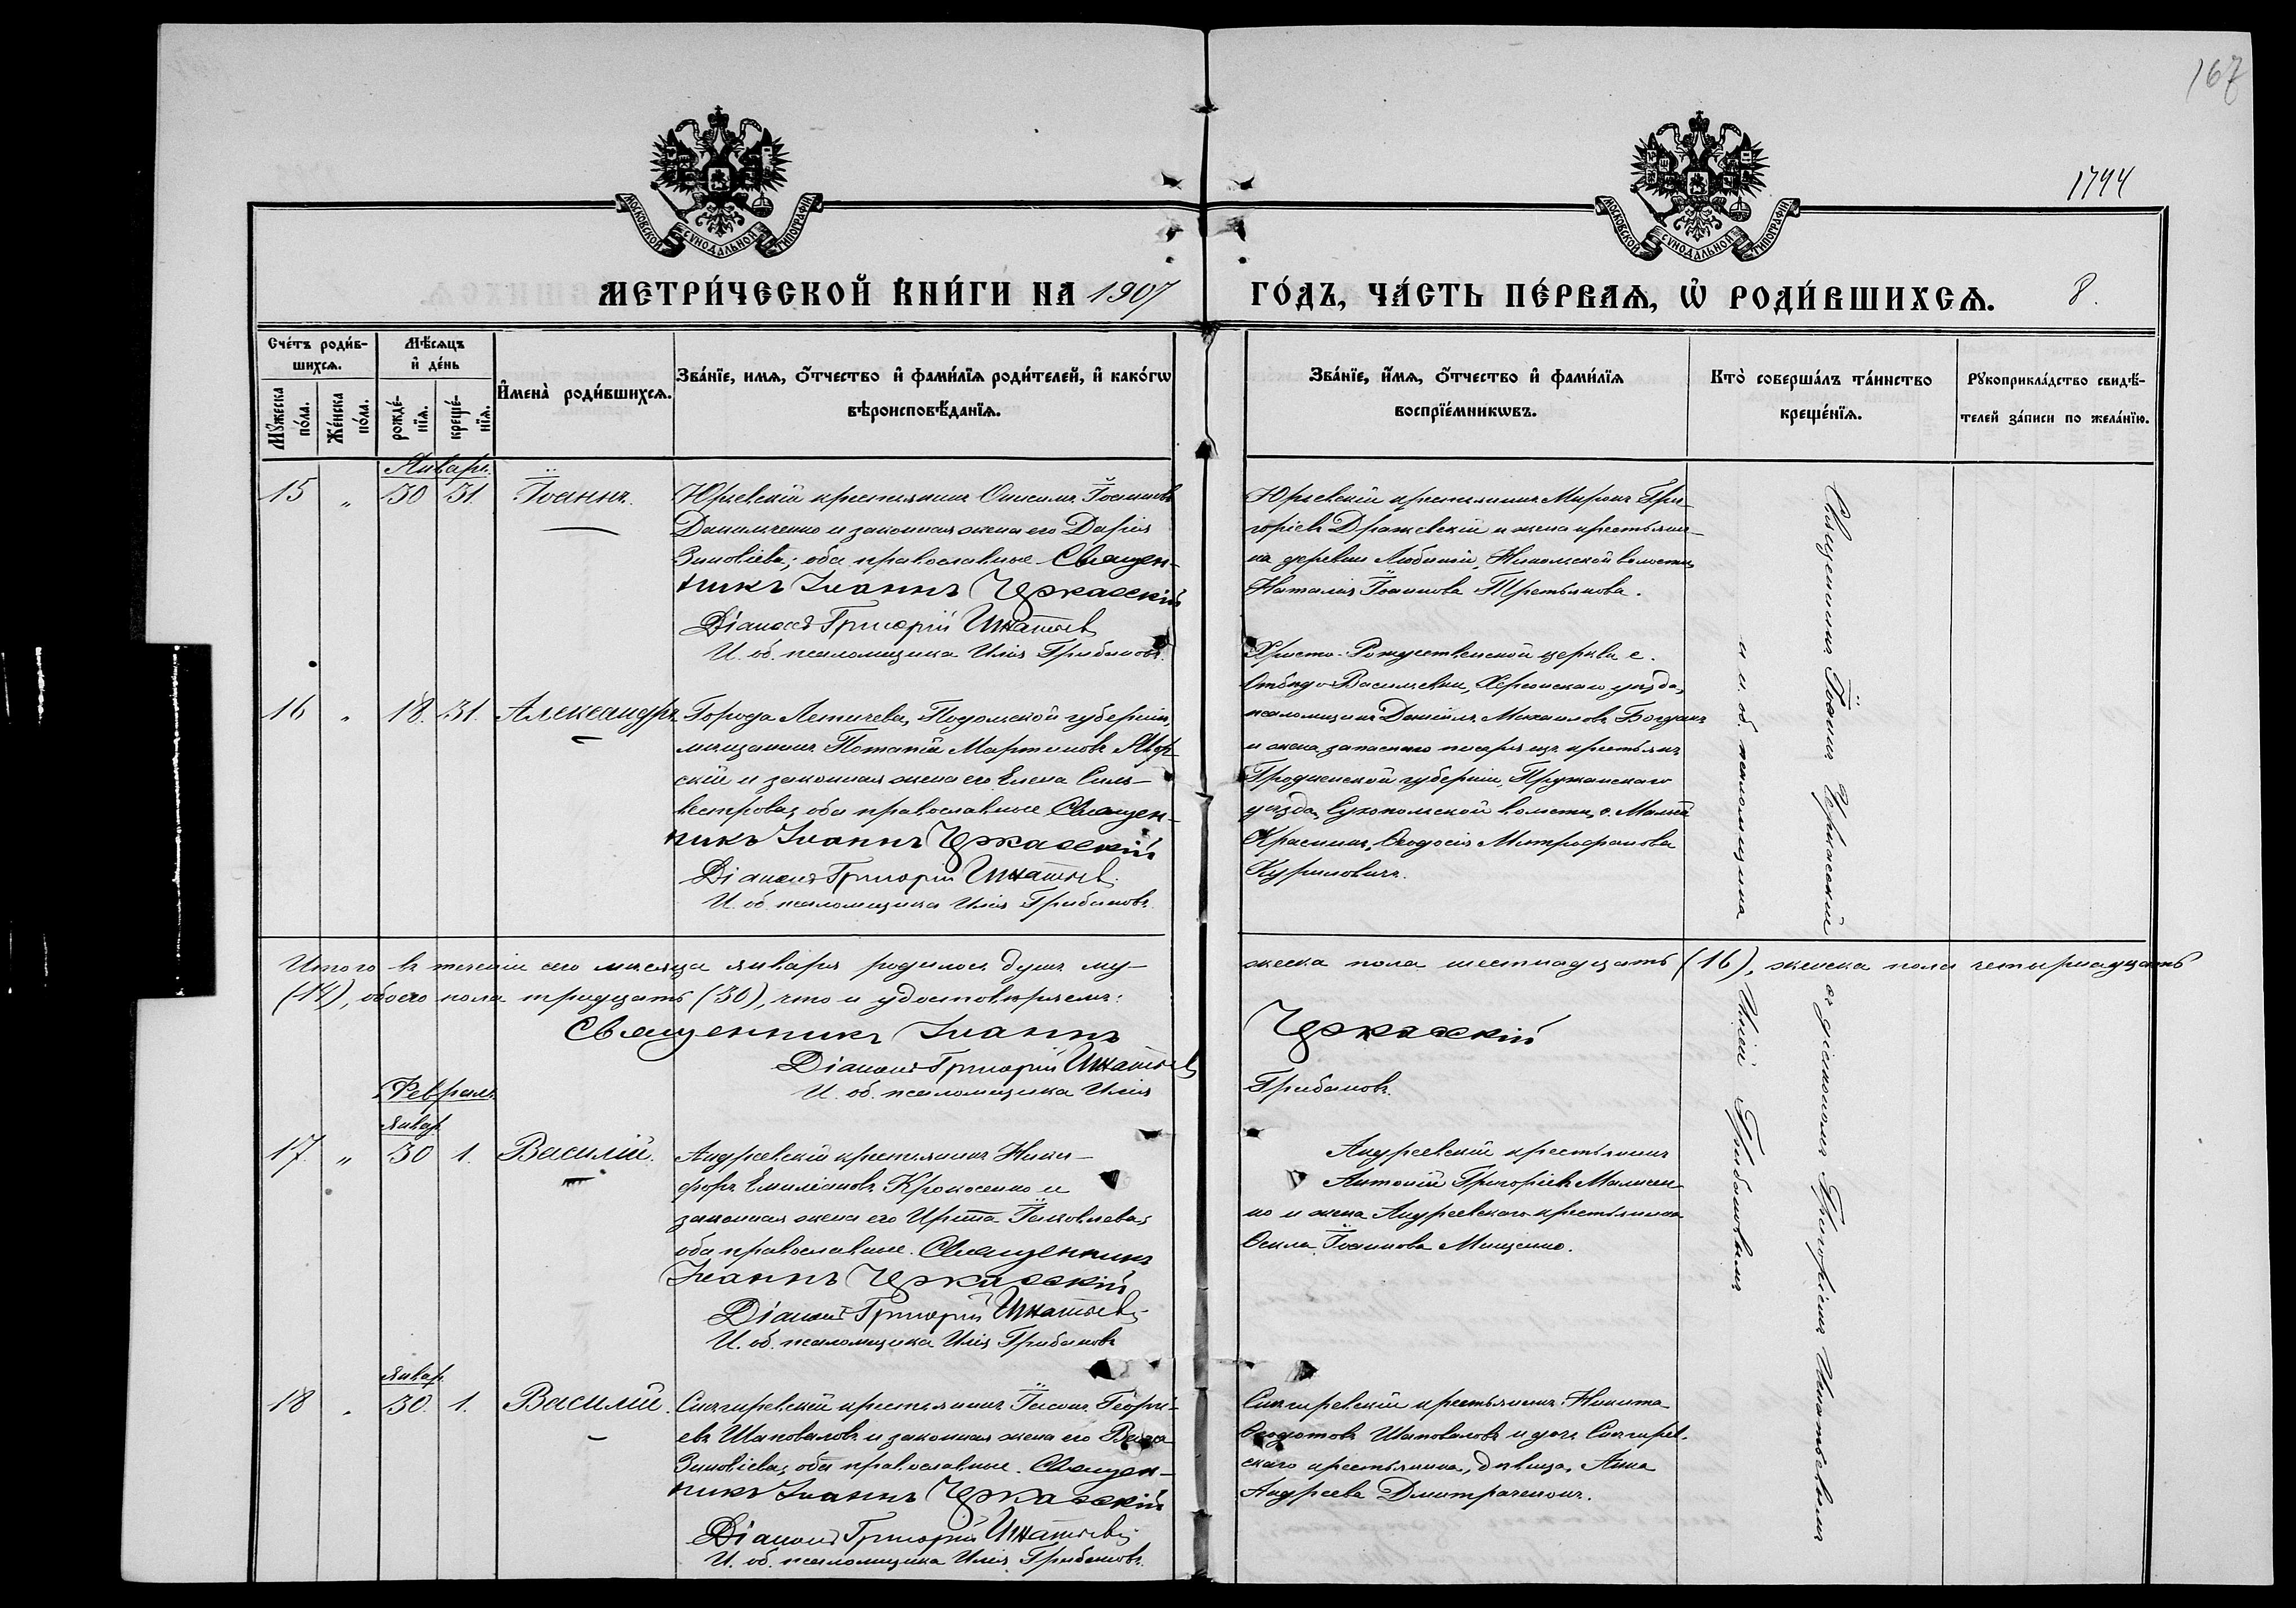 167
1744
МОСКОВСКОЙ СѴНОДАЛЬНОЙ ТИПОГРАФІИ
МОСКОВСКОЙ СѴНОДАЛЬНОЙ ТИПОГРАФІИ
МЕТРИ́ЧЕСКОЙ КНИ́ГИ НА 1907
ГО́ДЪ, ЧА́СТЬ ПЕ́РВАѦ, Ѡ РОДИ́ВШИХСѦ. 8.
Сче́тъ роди́в-
шихсѧ.
Мꙋжеска по́ла.
Же́нска по́ла.
Мѣ́сѧцъ
и де́нь
рожде́-нїѧ.
креще́-нїѧ.
Имена̀ роди́вшихсѧ.
Зва́нїе, имѧ, ѻ́тчество и фами́лїѧ роди́телей, и како́гѡ
вѣроисповѣ́данїѧ.
Зва́нїе, и́мѧ, ѻ́тчество и фами́лїѧ
воспрїе́мникѡвъ.
Кто̀ соверша́лъ та́инство
креще́нїѧ.
Рꙋкоприкла́дство свидѣ́-
телей за́писи по жела́нїю.
Январь.
15 „ 30 31. Іоаннъ.
Юрьевскій крестьянинъ Онисимъ Іоанновъ
Данильченко и законная жена его Дарія
Зиновіева; оба православные. Священ-
никъ Іоаннъ Черкасскій
Діаконъ Григорій Игнатьевъ
И. об. псаломщика Илія Грибановъ.
Юрьевскій крестьянинъ Миронъ Гри-
горіевъ Дражевскій и жена крестьяни-
на деревни Любиной, Никольской волости,
Наталія Іоаннова Третьякова.
16 „ 18. 31. Александръ.
Города Летичева, Подольской губерніи,
мѣщанинъ Потапій Мартиновъ
скій и законная жена его Елена Силь-
вестрова, оба православные Священ-
никъ Іоаннъ Черкасскій
Діаконъ Григорій Игнатьевъ
И. об. псаломщика Илія Грибановъ.
Христо-Рождественской церкви с.
Васильевки, Херсонскаго уѣзда,
псаломщикъ Даніилъ Михаиловъ Богданъ
и жена запаснаго писаря изъ крестьянъ
Гродненской губерніи, Пружанскаго
уѣзда, Сухопольской волости, с. Малый
Красникъ, Ѳеодосія Митрофанова
Куриловичъ.
Священникъ Іоаннъ Черкасскій
съ діакономъ Григоріемъ Игнатьевымъ
и и. об. псаломщика
Иліей Грибановымъ
Итого въ теченіи сего мѣсяца января родилось душъ му-
жеска пола шестнадцать (16), женска пола четырнадцать
(14), обоего пола тридцать (30), что и удостовѣряемъ:
Священникъ Іоаннъ Черкасскій
Діаконъ Григорій Игнатьевъ
И. об. псаломщика Илія Грибановъ.
Февраль.
Январ.
17. „ 30 1. Василій.
Андреевскій крестьянинъ Ники-
форъ Емиліановъ Крокосенко и
законная жена его Ирина Іаковлева,
оба православные. Священникъ
Іоаннъ Черкасскій
Діаконъ Григорій Игнатьевъ
И. об. псаломщика Илія Грибановъ
Андреевскій крестьянинъ
Антоній Григорьевъ Малиен-
ко и жена Андреевскаго крестьянина
Іоаннова Мищенко.
Январ.
18 „ 30. 1. Василій.
Снигиревскій крестьянинъ Іасонъ Георгі-
евъ Шаповаловъ и законная жена его
Зиновіева, оба православные. Священ-
никъ Іоаннъ Черкасскій
Діаконъ Григорій Игнатьевъ
И. об. псаломщика Илія Грибановъ.
Снигиревскій крестьянинъ Никита
Ѳеодотовъ Шаповаловъ и дочь Снигирев-
скаго крестьянина, дѣвица, Анна
Андреева Дмитраченкова.